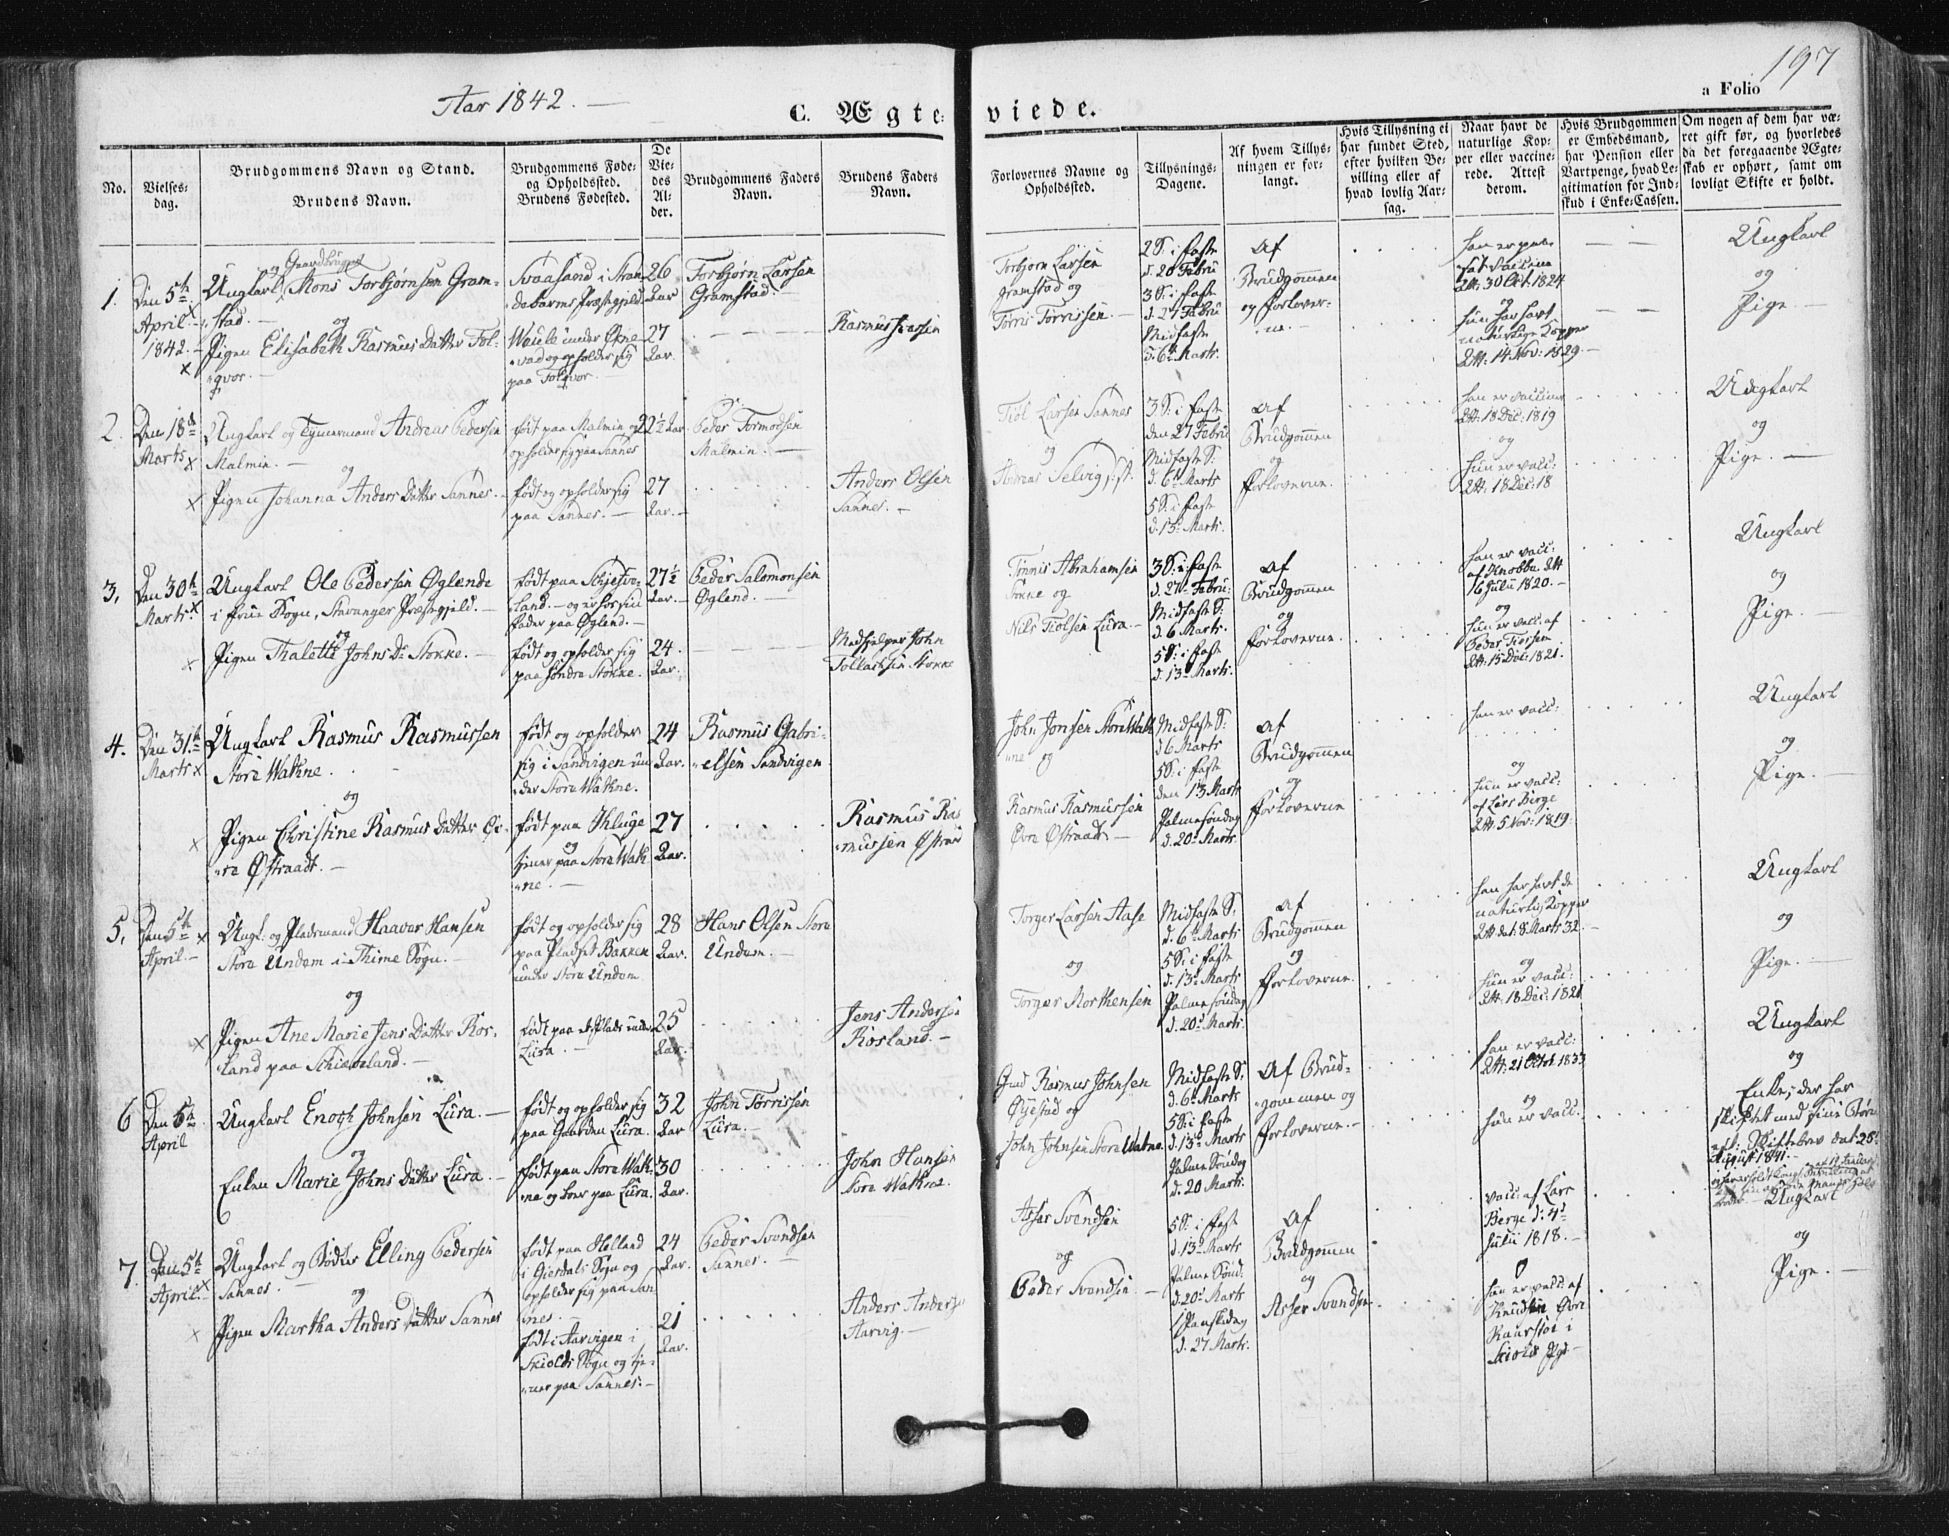 Aar 1842. —
C. Ægte-
viede.
a Folio 197
No.
Vielses-
dag.
Brudgommens Navn og Stand.
Brudens Navn.
Brudgommens Føde-
og Opholdssted.
Brudens Fødested.
De
Vie-
des
Al-
der.
Brudgommens Faders
Navn.
Brudens Faders
Navn.
Forlovernes Navne og
Opholdssted.
Tillysnings-
Dagene.
Af hvem Tillys-
ningen er for-
langt.
Hvis Tillysning ei
har fundet Sted,
efter hvilken Be-
villing eller af
hvad lovlig Aar-
sag.
Naar havt de
naturlige Kop-
per eller vaccine-
rede. Attest
derom.
Hvis Brudgommen
er Embedsmand,
har Pension eller
Vartpenge, hvad Le-
gitimation for Ind-
skud i Enke-Cassen.
Om nogen af dem har væ-
ret gift før, og hvorledes
da det foregaaende Ægte-
skab er ophørt, samt om
lovligt Skifte er holdt.
1.
Den 5te
April
1842.
og Gaardbruger
Ungkarl Mons Torbjørnsen Gram-
stad. —
og
Pigen Elisabeth Rasmus Datter Fol-
qvor. —
Svaaland i Stran
paa Folqvor.
26
Aar
27
Aar.
Torbjørn Larsen
Gramstad. —
Rasmus
Torbjørn Larsen
Gramstad og
Tørris Tørrissen. —
2 S: i Faste
d. 20 Febru
3 S: i Faste
d. 27 Febru
Midfaste
d. 6te Marts.
Af
Brudgommen
og Forlover-
ne. —
Att: 30 Oct: 1824
og
hun har havt
naturlige Kopper
Att: 14 Nov: 1829. —
Ungkarl
og
Pige. —
2.
Den 18de
Marts
Ungkarl og Tømmermand Andreas Pedersen
Malmin. —
og
Pigen Johanna Anders Datter Sannes. —
født paa Malmin og
opholder sig paa Sannes
født og opholder sig
paa Sannes. —
22½ Aar.
27
Aar. —
Peder Tormodsen
Malmin. —
Anders Olsen
Sannes. —
Larsen Sannes
og
Andreas Selvig
3 S: i Faste
den 27 Febru
Midfaste S:
d. 6te Marts
5 S: i Faste
d. 13de Marts.
Af
Brudgommen
og
Forloverne.
han er vaccine
Att: 18 Dec: 1819
og
hun er vacc:
Att: 18 Dec: 18
Ungkarl
og
Pige. —
3.
Den 30te
Marts
Ungkarl Ole Pedersen Øglende
i Frue Sogn, Stavanger Præstegjeld. —
og
Pigen Thalette Johns Dr Stokke. —
født paa
land. — og er hos sin
Fader paa Øglend. —
født og opholder sig
paa Søndre Stokke. —
27½
Aar. —
24.
Aar.
Peder Salomonsen
Øglend. —
Medhjelper John
Tollaksen Stokke
Tønnis Abrahamsen
og
Nils Tiølsen Lura. —
3 S: i Faste
d. 27 Febru:
Midfaste S:
d. 6 Marts.
5 S: i Faste
d. 13de Marts.
Af
Brudgommen
og
Forloverne.
han er vacc:
af Knobbe Att
16 Julii 1820. —
og
hun er vacc: af
Peder
Att: 15 Dec: 1821.
Ungkarl
og
Pige. —
4.
Den 31te
Marts
Ungkarl Rasmus Rasmussen
Store Watne.
og
Pigen Christine Rasmus Datter Øv-
re Østraadt. —
født og opholder
sig i Sandvigen un
der Store Watne.
født paa Kluge
og
tjener paa Store Wat
ne. —
24
Aar.
27
Aar.
Rasmus Gabri-
elsen Sandvigen
Rasmus Ras
mussen Østraa
John Jonsen Store Wat
ne og
Rasmus Rasmussen
Øvre Østraadt —
Midfaste S:
d 6 Marts
5 S: i Faste
den 13 Marts
Palmesøndag
d. 20de Marts.
Af
Brudgommen
og
Forloverne
han er vacc:
og
hun er vacc:
af Lars Birge
Att: 5 Nov: 1819.
Ungkarl
og
Pige. —
5.
Den 5te
April. —
Ungk: og Pladsmand Haavar Hansen
Store Undem i Thime Sogn. —
og
Pigen Ane Marie Jens Datter Ros-
land paa Schiæveland. —
født og opholder sig
paa Pladset Bakken
under Store Undem
født paa et Plads under
Lura. —
28
Aar.
25
Aar.
Hans Olsen Store
Undem. —
Jens Andersen
Rosland. —
Torger Larsen Aase
og
Torger Morthensen
Midfaste S:
d. 6te Marts
5 S: i Faste
d. 13de Marts
Palme Søndag
d. 20de Marts.
Af
Brudgommen
og
Forloverne.
han har havt de
naturlig Kopper
Att dat: 8 Marts 32. —
og
hun er vacc:
Att: 18 Dec: 1821
Ungkarl
og
Pige. —
6
Den 5te
April
Ungkarl Enoch Johnsen Lura. —
og
Enken Marie Johns Datter Lura. —
født og opholder sig
paa Gaarden Lura.
født paa Store Wat-
ne og boer paa Lura.
32
Aar
30
Aar.
John Tørrissen
Lura. —
John Hansen
Store Watne.
Gmd Rasmus Johnsen
Øyestad og
John Johnsen Store Watne.
Midfaste S:
d. 6te Marts
5 S: i Faste
d. 13de Marts
Palme Søndag
d. 20 Marts.
Af Brud-
gommen og
Forloverne. —
han er vacc:
Att: 21 Octob 1833
og
hun er vacc:
Ungkarl
og
Enke, der har
skiftet med sine Børn
efter Skiftebrev dat: 25
August 1841. —
7.
Den 5te
April
Ungkarl og Bødker Elling Pedersen
Sannes. —
og
Pigen Martha Anders Datter Sannes
født paa Hølland
i Giesdals Sogn og
opholder sig paa San
nes. —
født i Aarvigen i
Skiolds Sogn og tje-
ner paa Sannes. —
24
Aar.
21
Aar.
Peder Svendsen
Sannes. —
Anders Anders
Aarvig. —
Asser Svendsen
og
Peder Svendsen. —
5 S: i Faste
d. 13de Marts
Palme Sønd.
d. 20de Marts
1 Paaskedag
d. 27 Marts.
Af
Brudgommen
og
Asser Svendsen
vacc: af Lars
Berge d: 4de
Julii 1818. —
hun er vacc: af
Knudsen Øvre
i
Skiolds Pgd —
Ungkarl
og
Pige. —